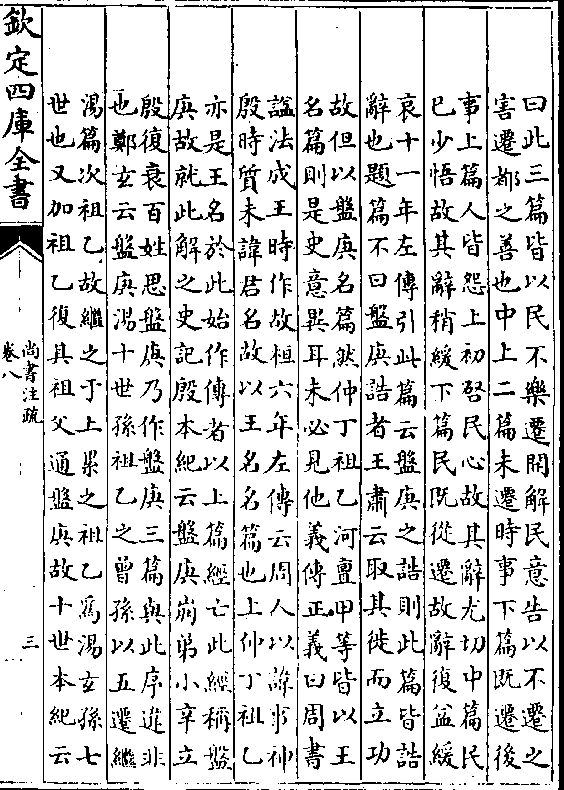 曰此三篇皆以民不樂遷開解民意告以不遷之
害遷都之善也中上二篇未遷時事下篇既遷後
事上篇人皆怨上初啓民心故其辭尤切中篇民
已少悟故其辭稍緩下篇民既從遷故辭復益緩
哀十一年左傳引此篇云盤庚之誥則此篇皆誥
辭也題篇不曰盤庚誥者王肅云取其徙而立功
故但以盤庚名篇然仲丁祖乙河亶甲等皆以王
名篇則是史意異耳未必見他義傳正義曰周書
諡法成王時作故桓六年左傳云周人以諱事神
殷時質未諱君名故以王名名篇也上仲丁祖乙
亦是王名於此始作傳者以上篇經亡此經稱盤
庚故就此解之史記殷本紀云盤庚崩弟小辛立
殷復衰百姓思盤庚乃作盤庚三篇與此序違非
也鄭玄云盤庚湯十世孫祖乙之曾孫以五遷繼
湯篇次祖乙故繼之于上累之祖乙為湯玄孫七
世也又加祖乙復其祖父通盤庚故十世本紀云
欽定四庫全書
尚書注疏
卷八
三